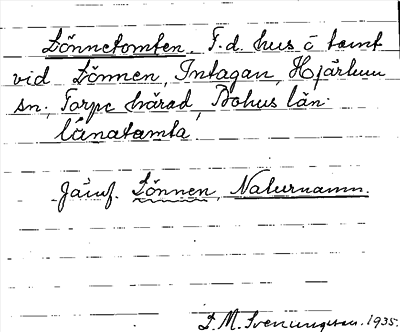 Lönnetomten. F.d. hus o tomt
vid Lönnen, Intagan, Hjärtum
sn., Torpe härad, Bohus län.
lånatamta
Jämf. Lönnen, Naturnamn.
D. M. Svenungsson. 1935.